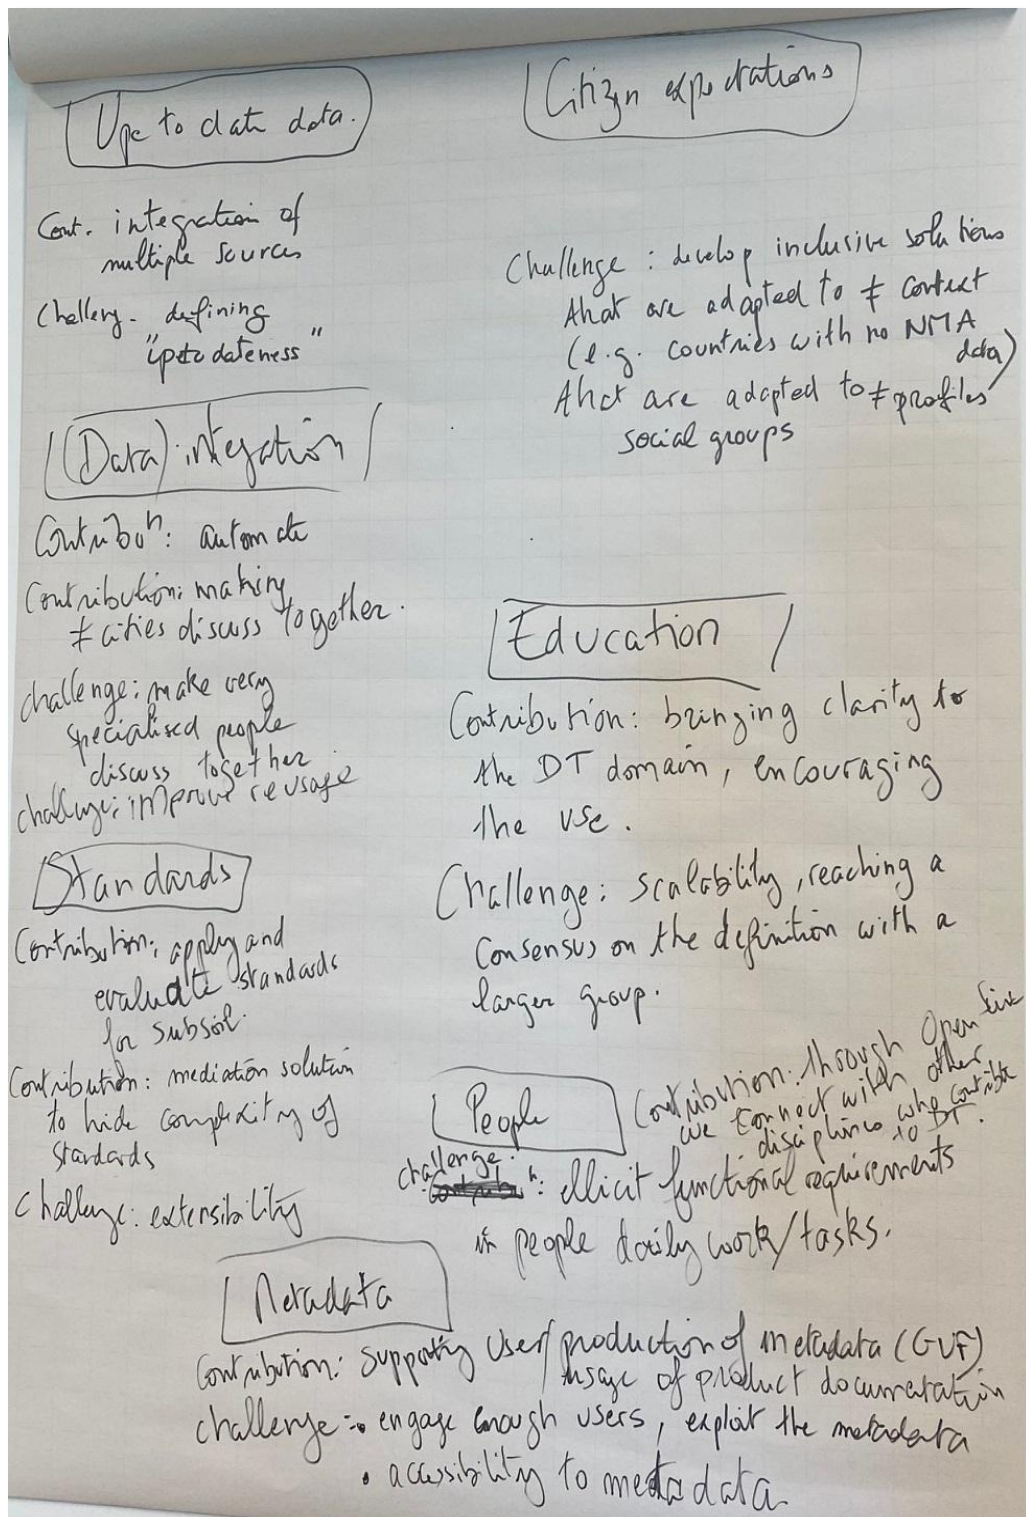 Up to date data.
Cont. integration of
multiple sources
Challeng. defining
"uptodateness"
(Data) integration
Contribuⁿ: automate
Contribution: making
≠ cities discuss together.
challenge: make very
specialised people
discuss together
challenge: improve reusage
Standards
Contribution: apply and
evaluate standards
for subsoil.
Contribution: mediation solution
to hide complexity of
standards
Challenge: extensibility
Citizen expectations
Challenge: develop inclusive solutions
that are adapted to ≠ context
(e.g. countries with no NMA
data)
that are adapted to ≠ profiles
social groups
Education
Contribution: bringing clarity to
the DT domain, encouraging
the use.
Challenge: scalability, reaching a
consensus on the definition with a
larger group.
People
Contribution: through Open
we connect with other
disciplines who contribute
to DT.
challenge:
ellicit functional requirements
in people daily work/tasks.
Metadata
Contribution: supporting user/production of metadata (GUF)
usage of product documentation
challenge: • engage enough users, exploit the metadata
• accessibility to metadata